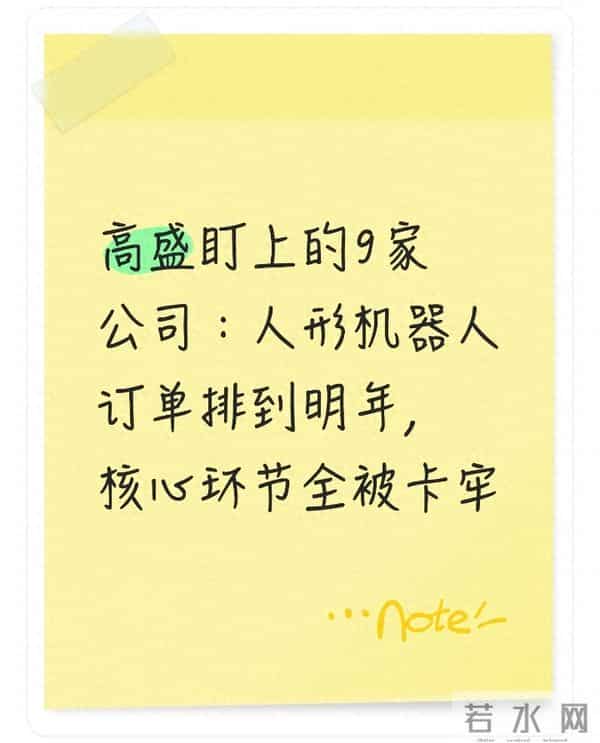 高盛盯上的9家
公司：人形机器人
订单排到明年,
核心环节全被卡牢
...note!
若水网